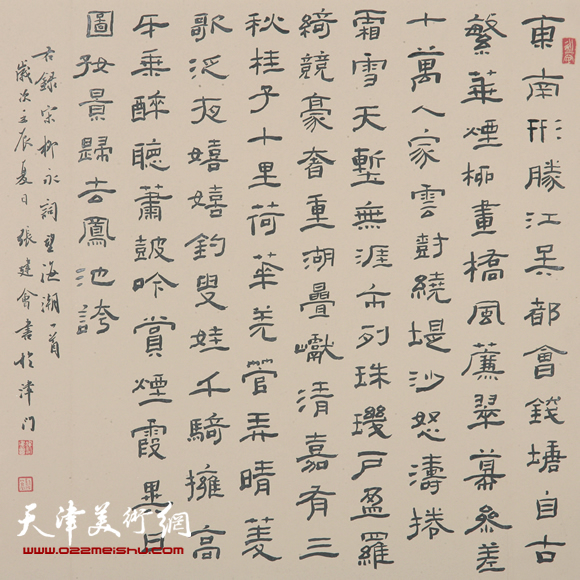 東南形勝江吴都會錢塘自古
繁華煙柳畫橋風簾翠幕參差
十萬人家雲樹繞堤沙怒濤捲
霜雪天塹無涯市列珠璣戶盈羅
綺競豪奢重湖疊巘清嘉有三
秋桂子十里荷華羌管弄晴菱
歌泛夜嬉嬉釣叟娃千騎擁高
牙乘醉聽蕭鼓吟賞煙霞異日
圖好景歸去鳳池誇
右錄宋柳永詞望海潮一首
歲次壬辰夏日張建會書於津門
天津美術網
www.022meishu.com